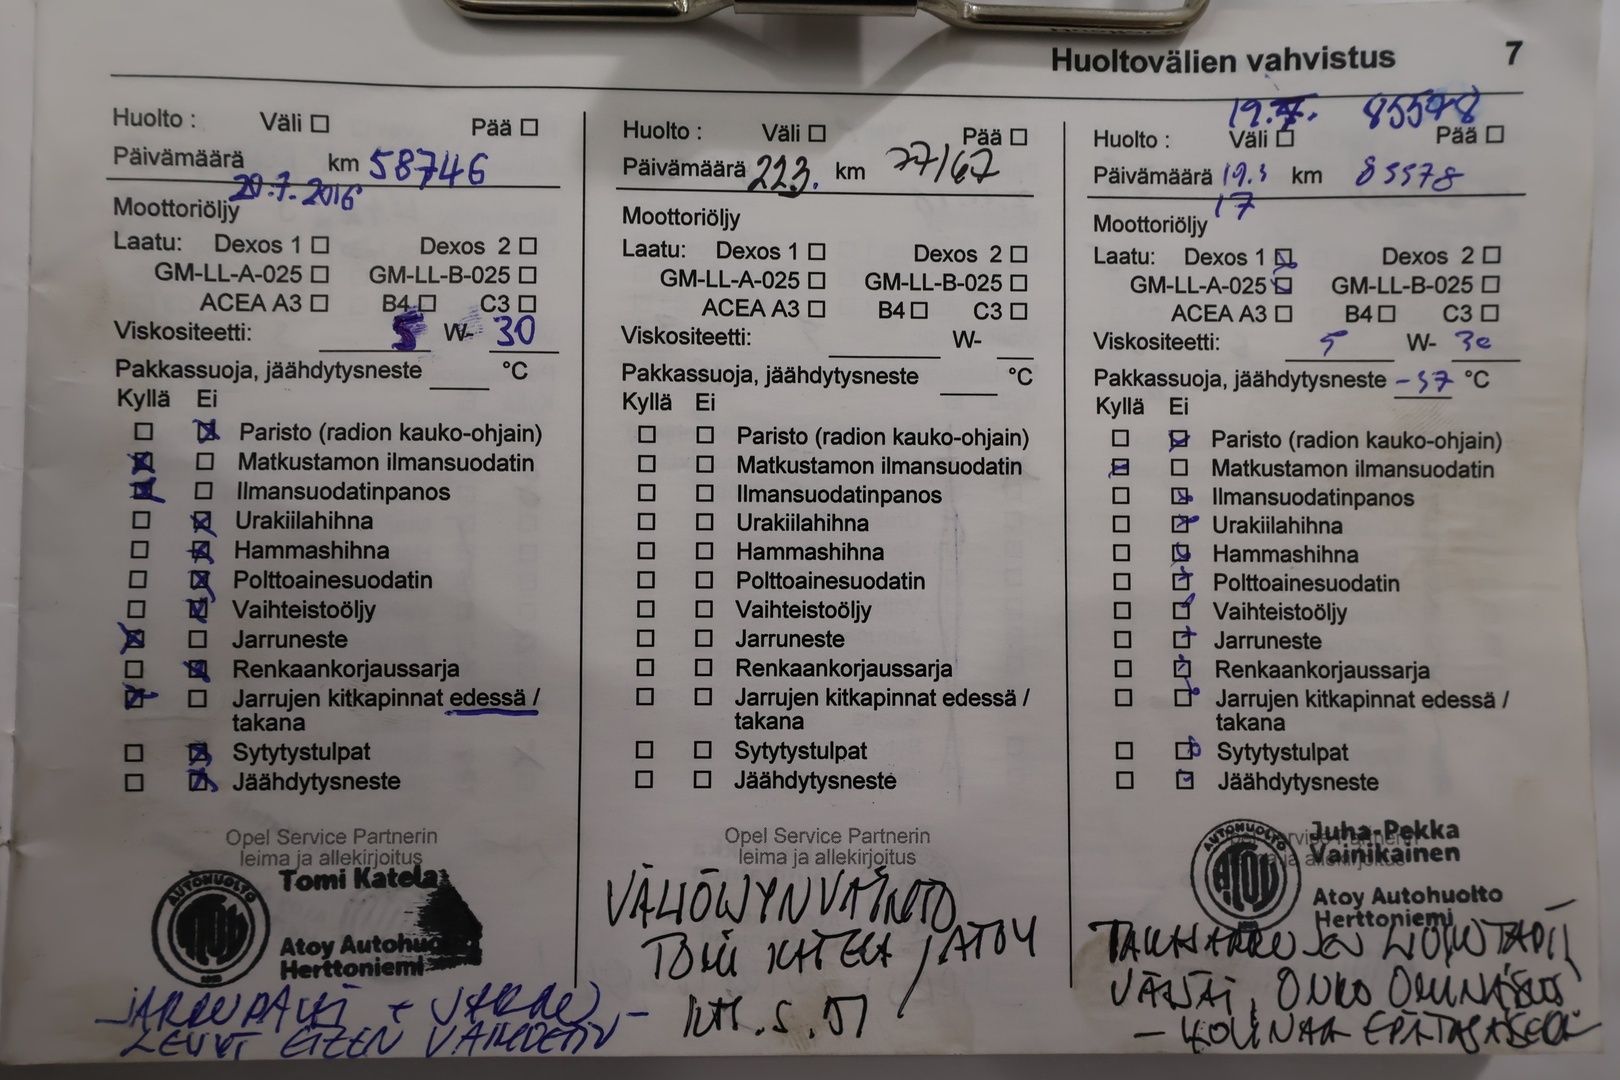 Huoltovälien vahvistus 7
Huolto : Väli Pää
Päivämäärä km 58746
29.7.2016
Moottoriöljy
Laatu: Dexos 1 Dexos 2
GM-LL-A-025 GM-LL-B-025
ACEA A3 B4 C3
Viskositeetti: 5 W- 30
Pakkassuoja, jäähdytysneste °C
Kyllä Ei
Paristo (radion kauko-ohjain)
Matkustamon ilmansuodatin
Ilmansuodatinpanos
Urakiilahihna
Hammashihna
Polttoainesuodatin
Vaihteistoöljy
Jarruneste
Renkaankorjaussarja
Jarrujen kitkapinnat edessä /
takana
Sytytystulpat
Jäähdytysneste
Opel Service Partnerin
leima ja allekirjoitus
AUTOHUOLTO
ATOY
Tomi Katela
Atoy Autohuo
Herttoniemi
JARRUPALAT + JARRU-
LEVYT ETEEN
Huolto : Väli Pää
Päivämäärä 22.3. km 77167
Moottoriöljy
Laatu: Dexos 1 Dexos 2
GM-LL-A-025 GM-LL-B-025
ACEA A3 B4 C3
Viskositeetti: W-
Pakkassuoja, jäähdytysneste °C
Kyllä Ei
Paristo (radion kauko-ohjain)
Matkustamon ilmansuodatin
Ilmansuodatinpanos
Urakiilahihna
Hammashihna
Polttoainesuodatin
Vaihteistoöljy
Jarruneste
Renkaankorjaussarja
Jarrujen kitkapinnat edessä /
takana
Sytytystulpat
Jäähdytysneste
Opel Service Partnerin
leima ja allekirjoitus
VÄLIÖLJYNVAIHTO
TOMI KATELA / ATOY
KTS. S. 51
19.7. 85578
Huolto : Väli Pää
Päivämäärä 19.3 km 85578
17
Moottoriöljy
Laatu: Dexos 1 Dexos 2
GM-LL-A-025 GM-LL-B-025
ACEA A3 B4 C3
Viskositeetti: 5 W- 30
Pakkassuoja, jäähdytysneste -37 °C
Kyllä Ei
Paristo (radion kauko-ohjain)
Matkustamon ilmansuodatin
Ilmansuodatinpanos
Urakiilahihna
Hammashihna
Polttoainesuodatin
Vaihteistoöljy
Jarruneste
Renkaankorjaussarja
Jarrujen kitkapinnat edessä /
takana
Sytytystulpat
Jäähdytysneste
AUTOHUOLTO
ATOY
Juha-Pekka
Vainikainen
Atoy Autohuolto
Herttoniemi
TAKAJARRUJEN
ONKO